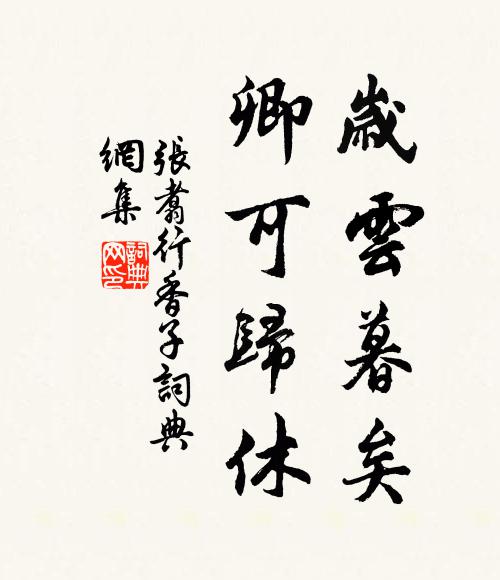 歲雲暮矣
卿可歸休
張翥行香子詞典
網集
詞典網印